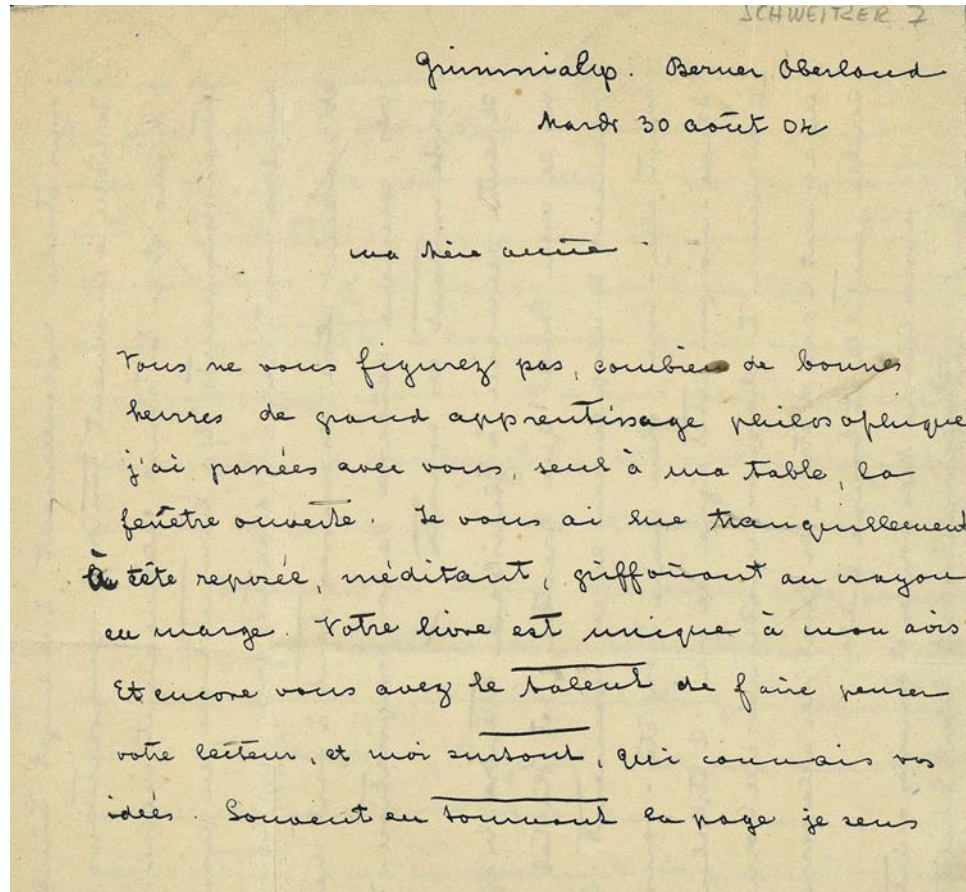 SCHWEITZER 7
Grimmialp. Berner Oberland
Mardi 30 août 04
ma chère amie
Vous ne vous figurez pas, combien de bonnes
heures de grand apprentissage philosophique
j'ai passées avec vous, seul à ma table, la
fenêtre ouverte. Je vous ai lue tranquillement
à tête reposée, méditant, griffonant au crayon
en marge. Votre livre est unique à mon avis
Et encore vous avez le talent de faire penser
votre lecteur, et moi surtout, qui connais vos
idées. Souvent en tournant la page je sens